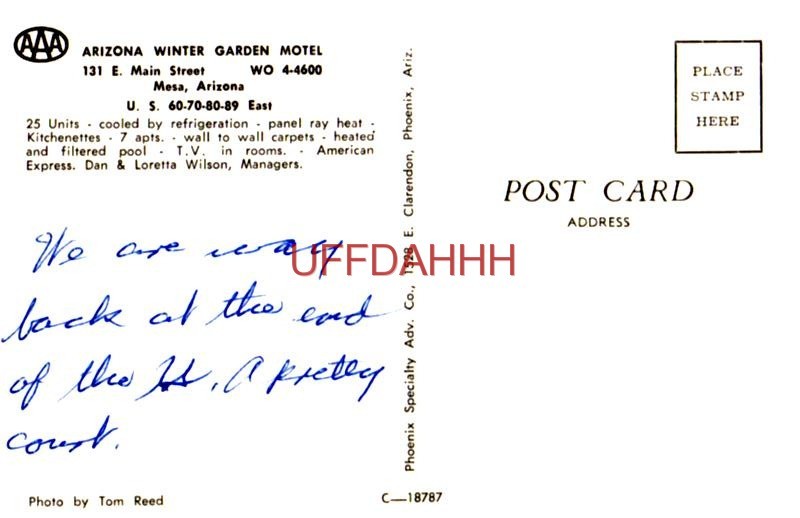 AAA
ARIZONA WINTER GARDEN MOTEL
131 E. Main Street WO 4-4600
Mesa, Arizona
U. S. 60-70-80-89 East
25 Units - cooled by refrigeration - panel ray heat -
Kitchenettes - 7 apts. - wall to wall carpets - heated
and filtered pool - T.V. in rooms. - American
Express. Dan & Loretta Wilson, Managers.
We are way
back at the end
of the . A pretty
court.
Photo by Tom Reed
Phoenix Specialty Adv. Co., 1528 E. Clarendon, Phoenix, Ariz.
C—18787
UFFDAHHH
PLACE
STAMP
HERE
POST CARD
ADDRESS